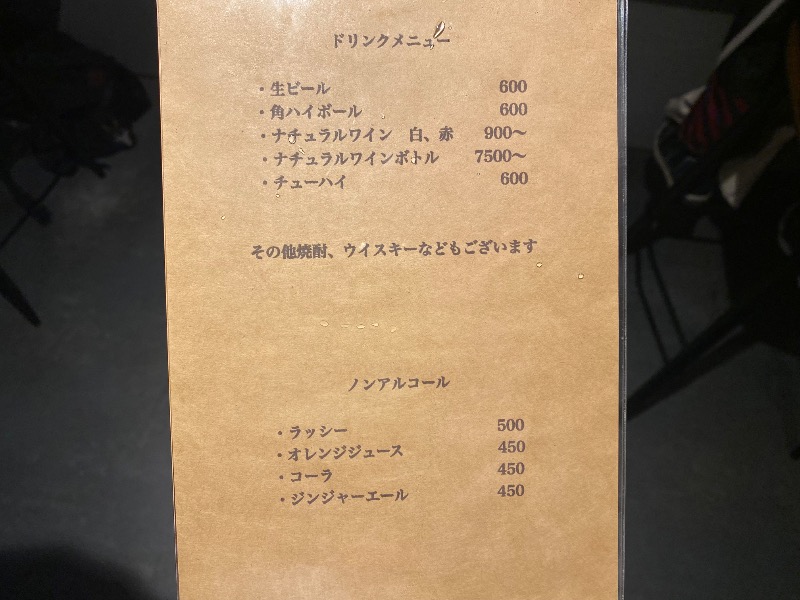 ドリンクメニュー
・生ビール 600
・角ハイボール 600
・ナチュラルワイン　白、赤 900〜
・ナチュラルワインボトル 7500〜
・チューハイ 600
その他焼酎、ウイスキーなどもございます
ノンアルコール
・ラッシー 500
・オレンジジュース 450
・コーラ 450
・ジンジャーエール 450